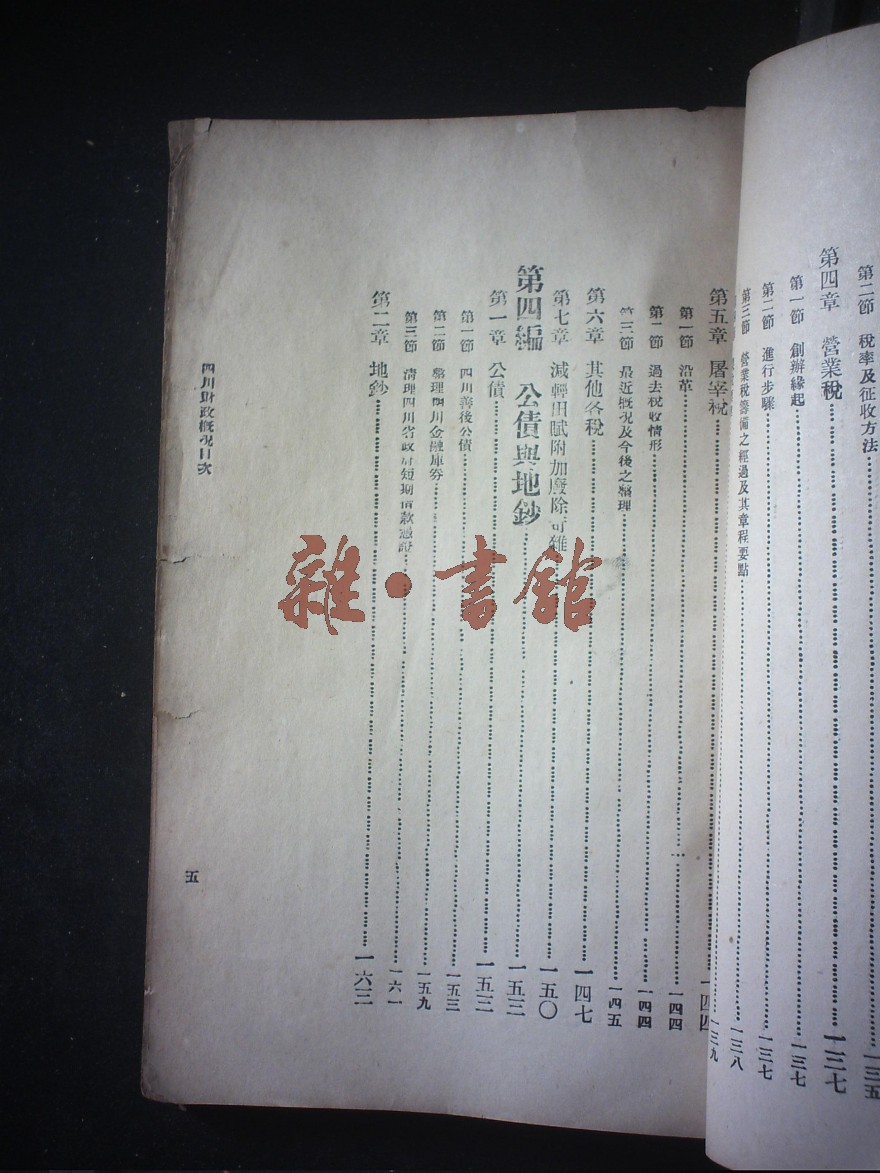 第二節 税率及征收方法……一三五
第四章 營業税……一三七
第一節 創辦緣起……一三七
第二節 進行步驟……一三七
第三節 營業税籌備之經過及其章程要點……一三八
一三九
第五章 屠宰税……一四四
第一節 沿革……一四四
第二節 過去税收情形……一四四
第三節 最近概況及今後之整理……一四五
第六章 其他各税……一四七
第七章 減輕田賦附加廢除苛雜……一五〇
第四編 公債與地鈔……一五三
第一章 公債……一五三
第一節 四川善後公債……一五三
第二節 整理四川金融庫券……一五九
第三節 清理四川省政府短期借款憑證……一六一
第二章 地鈔……一六三
四川財政概況目次
五
雜·書館